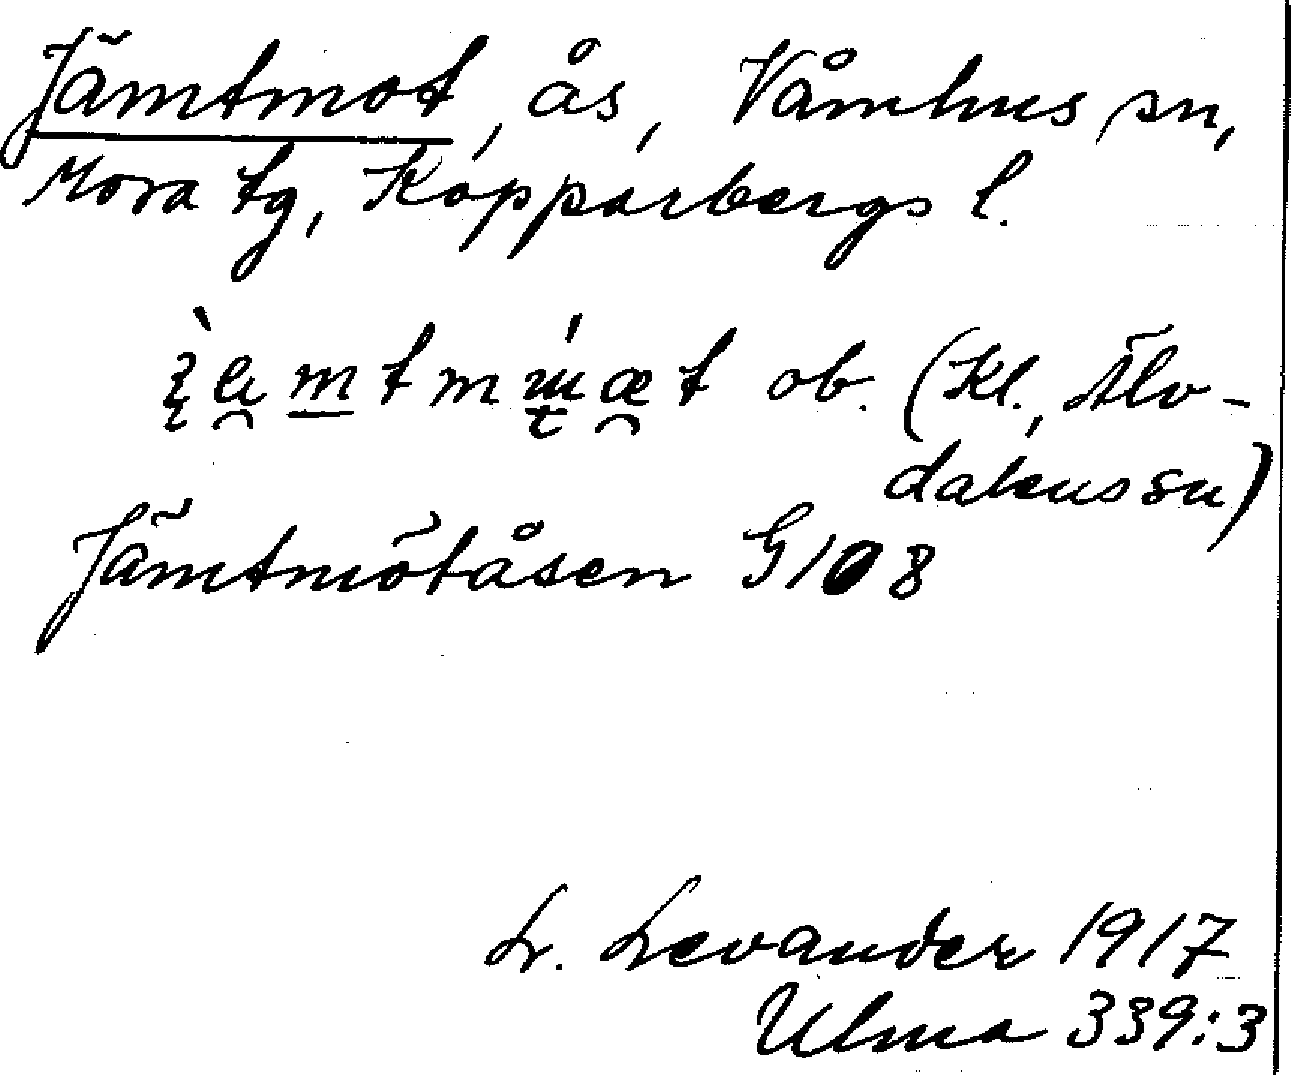 Jämtmot, ås, Våmhus sn,
Mora tg, Kopparbergs l.
ob. (Kl., Älv-
dalens sn)
Jämtmotåsen G108
L. Levander 1917
Ulma 339:3